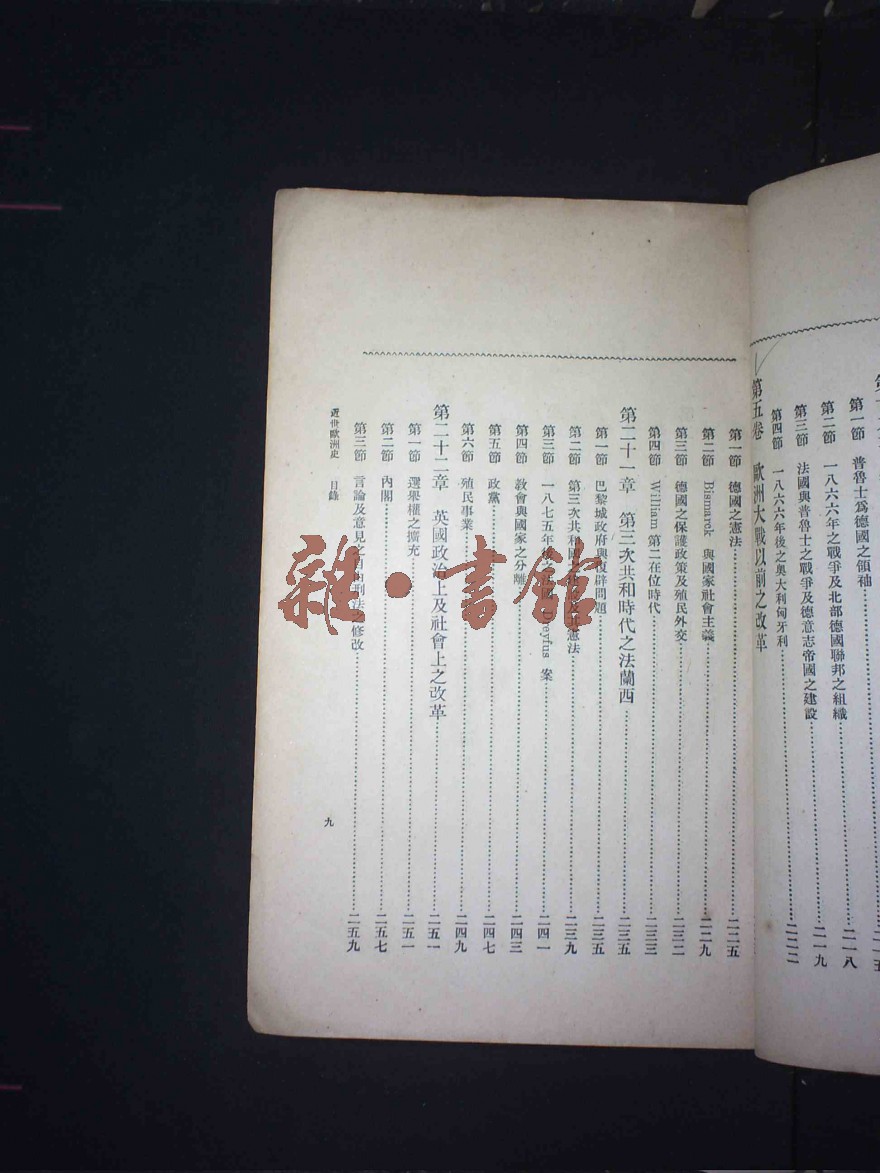 第一節 普魯士爲德國之領袖
第二節 一八六六年之戰爭及北部德國聯邦之組織 二一八
第三節 法國與普魯士之戰爭及德意志帝國之建設 二一九
第四節 一八六六年後之奧大利匈牙利 二二二
第五卷 歐洲大戰以前之改革
第一節 德國之憲法 二二五
第二節 Bismarck 與國家社會主義 二二九
第三節 德國之保護政策及殖民外交 二三二
第四節 William 第二在位時代 二三三
第二十一章 第三次共和時代之法蘭西 二三五
第一節 巴黎城政府與復辟問題 二三五
第二節 第三次共和國之 及其憲法 二三九
第三節 一八七五年後之法國 Dreyfus 案 二四一
第四節 教會與國家之分離 二四三
第五節 政黨 二四七
第六節 殖民事業 二四九
第二十二章 英國政治上及社會上之改革 二五一
第一節 選舉權之擴充 二五一
第二節 內閣 二五七
第三節 言論及意見之自由刑法之修改 二五九
近世歐洲史 目錄
九
雜·書館